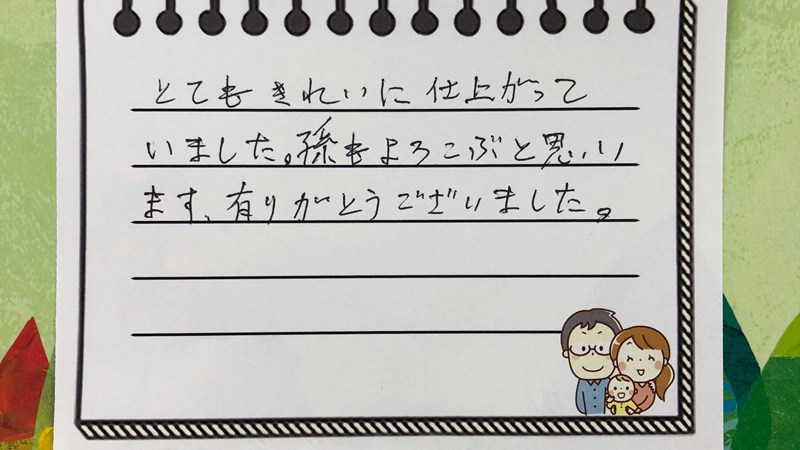 とてもきれいに仕上がって
いました。孫もよろこぶと思い
ます、有りがとうございました。